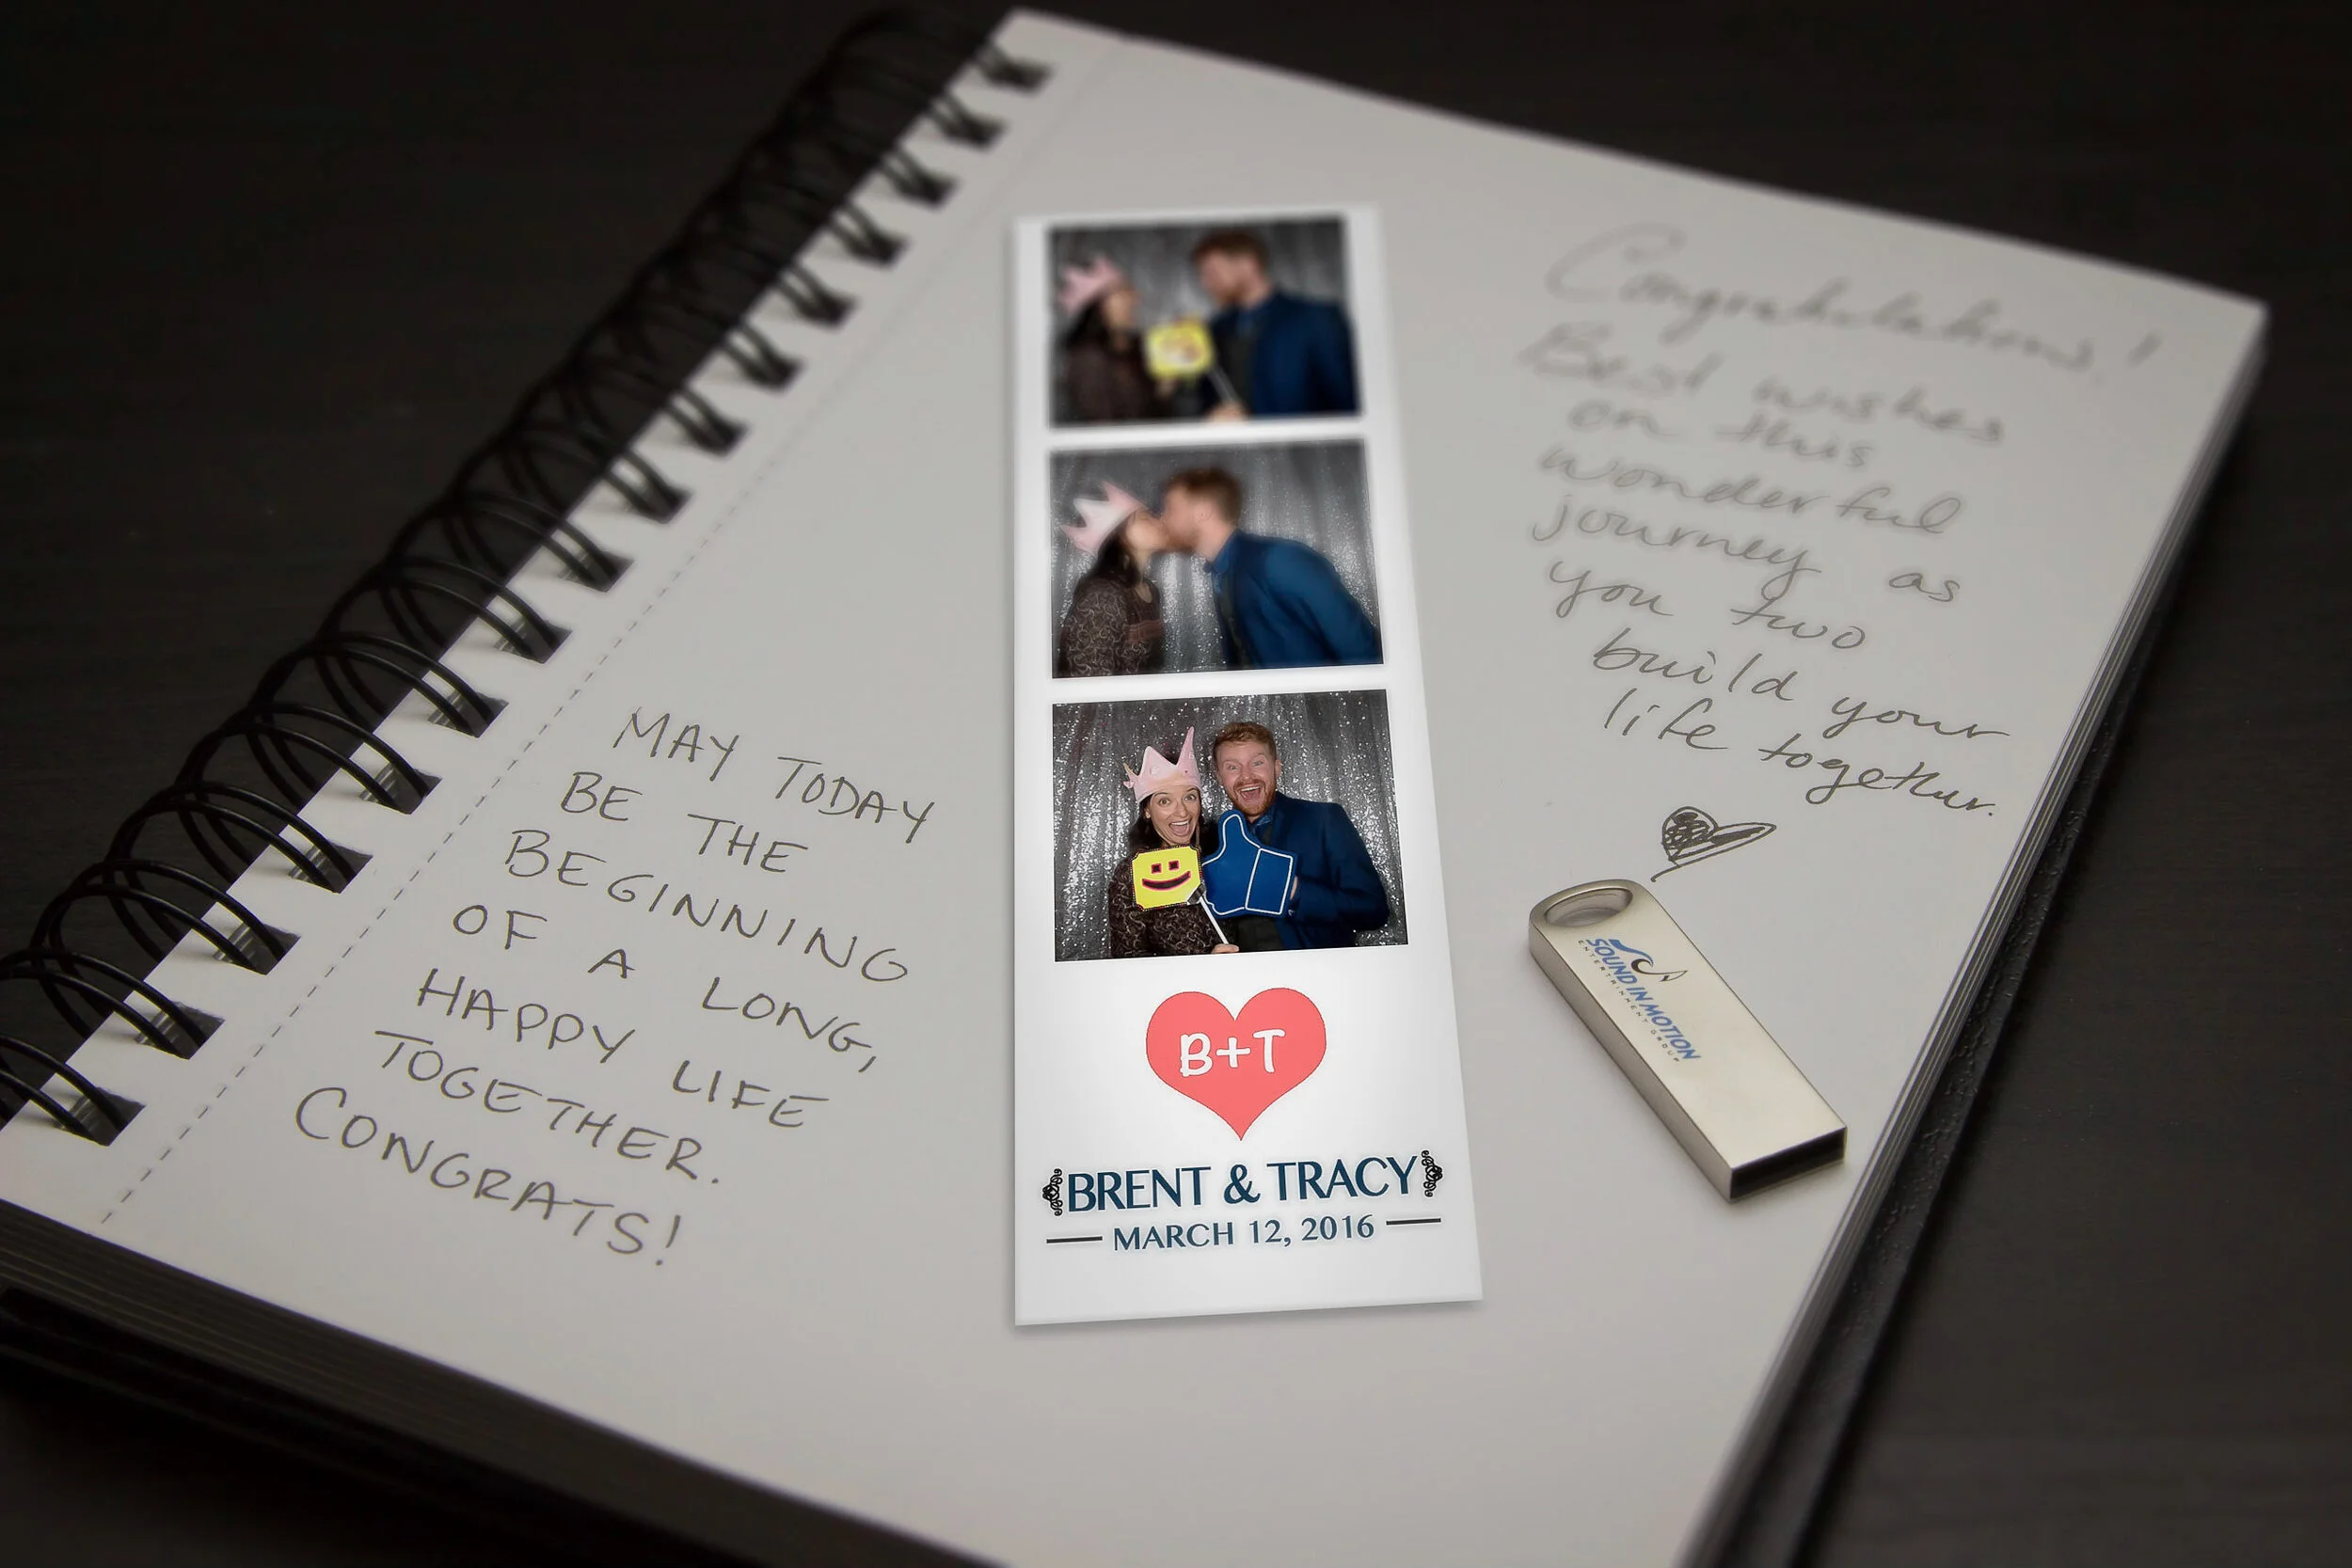 MAY TODAY
BE THE
BEGINNING
OF A LONG,
HAPPY LIFE
TOGETHER.
CONGRATS!
B+T
BRENT & TRACY
MARCH 12, 2016
Congratulations!
Best wishes
on this
wonderful
journey as
you two
build your
life together.
SOUND IN MOTION
ENTERTAINMENT GROUP